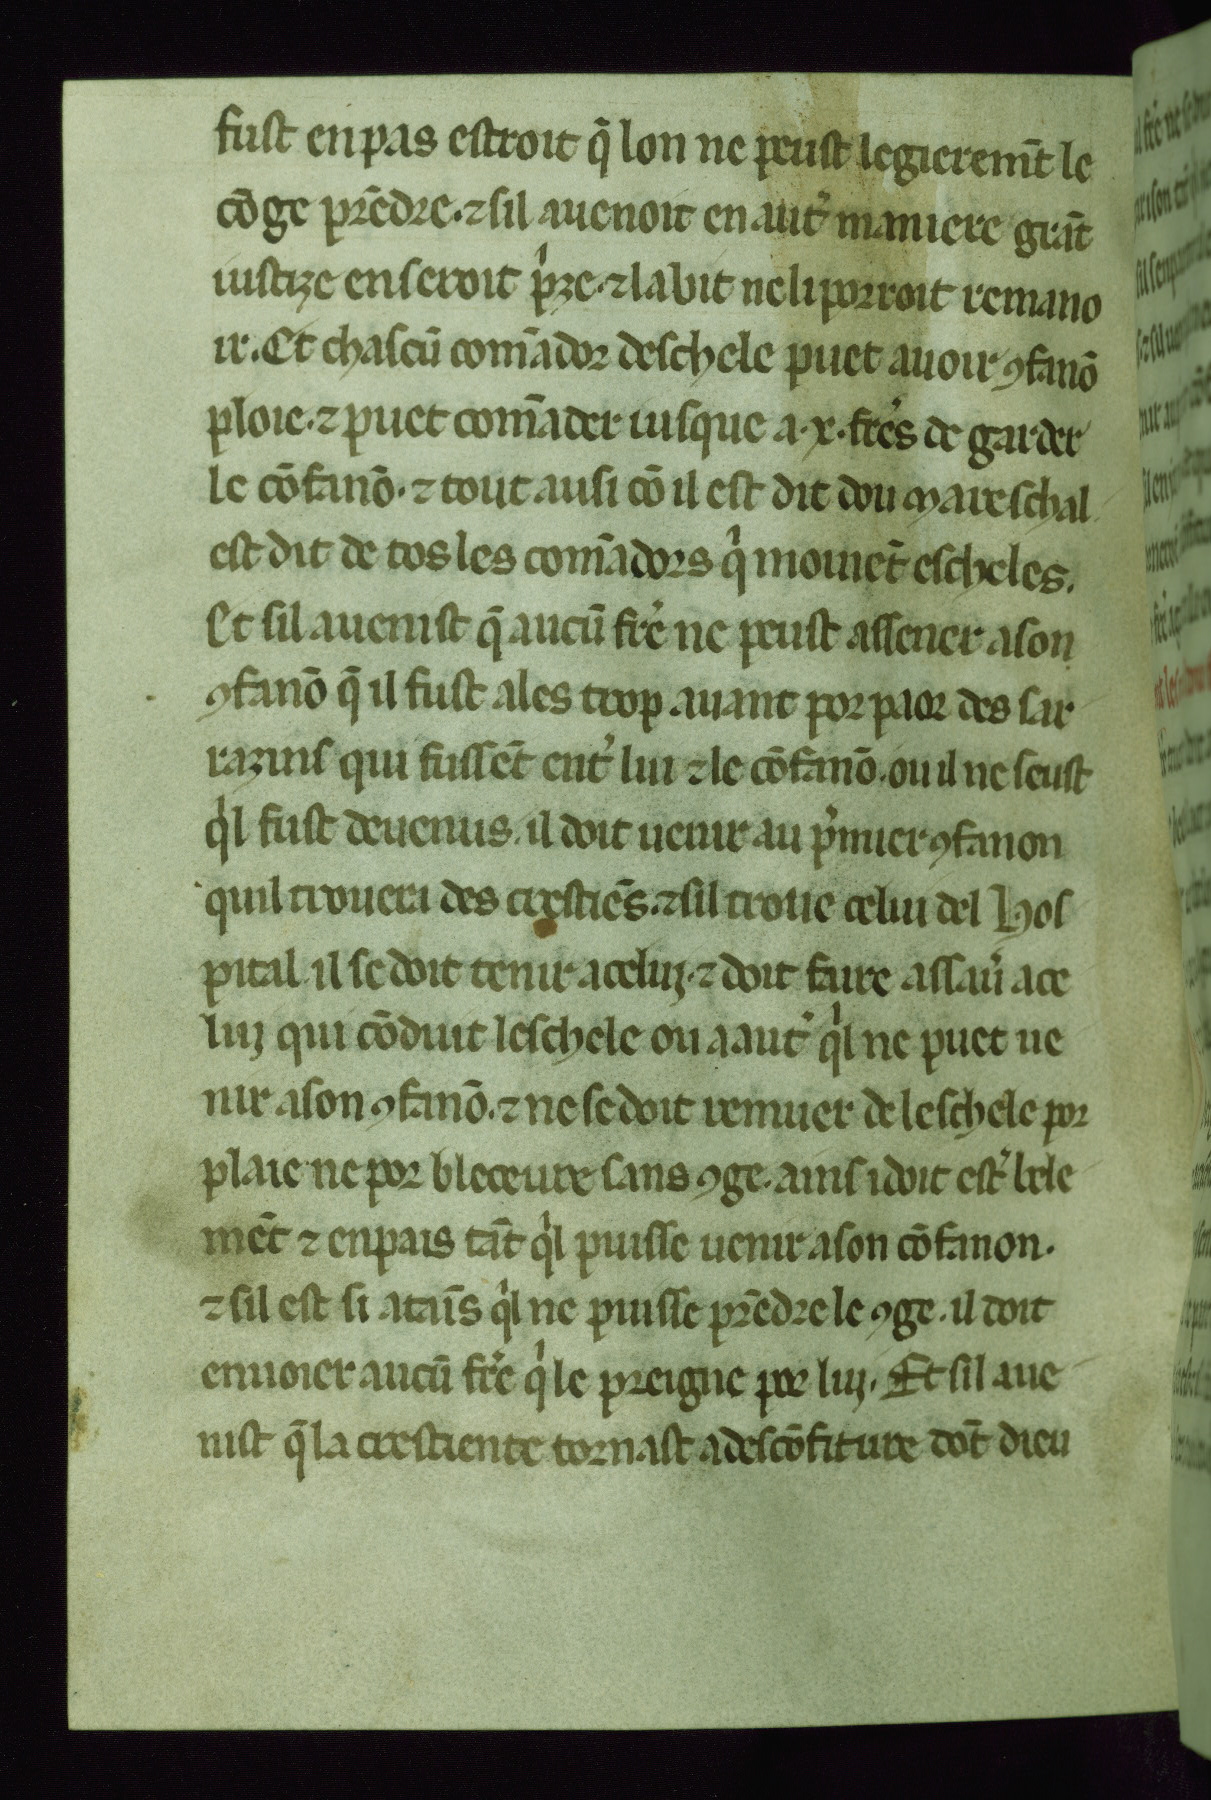 fust en pas estroit q̃ lon ne peust legieremt̃ le
cõge prẽdre. ⁊ sil auenoit en aut̾ maniere grãt
iustize en seroit pͥze. ⁊ labit ne li porroit remano
ir. Et chascũ comãdor deschele puet auoir ꝯfanõ
ploie. ⁊ puet comãder iusque a .x. fre̾s de garder
le cõfanõ. ⁊ tout ausi cõ il est dit dou mareschal
est dit de tos les comãdors qͥ moinet̃ escheles.
Et sil auenist q̃ aucũ fre̾ ne peust assener a son
ꝯfanõ q̃ il fust ales trop auant por paor des sar
razins qui fussẽt ent̾ lui ⁊ le cõfanõ. ou il ne seust
qͥl fust deuenus. il doit uenir au p̾mier ꝯfanon
quil trouera des crestiẽs. ⁊ sil troue celui del Hos
pital il se doit tenir a celuj. ⁊ doit faire assau̾ a ce
luj qui cõduit leschele ou a aut̾ qͥl ne puet ue
nir a son ꝯfanõ. ⁊ ne se doit remuer de leschele por
plaie ne por bleceure sans ꝯge. ains i doit est̾ bele
mẽt ⁊ en pais tãt qͥl puisse uenir a son cõfanon.
⁊ sil est si ataīs qͥl ne puisse prẽdre le ꝯge. il doit
enuoier aucũ fre̾ qͥ le preigne por luj. Et sil aue
nist q̃ la crestiente tornast a descõfiture dõt dieu